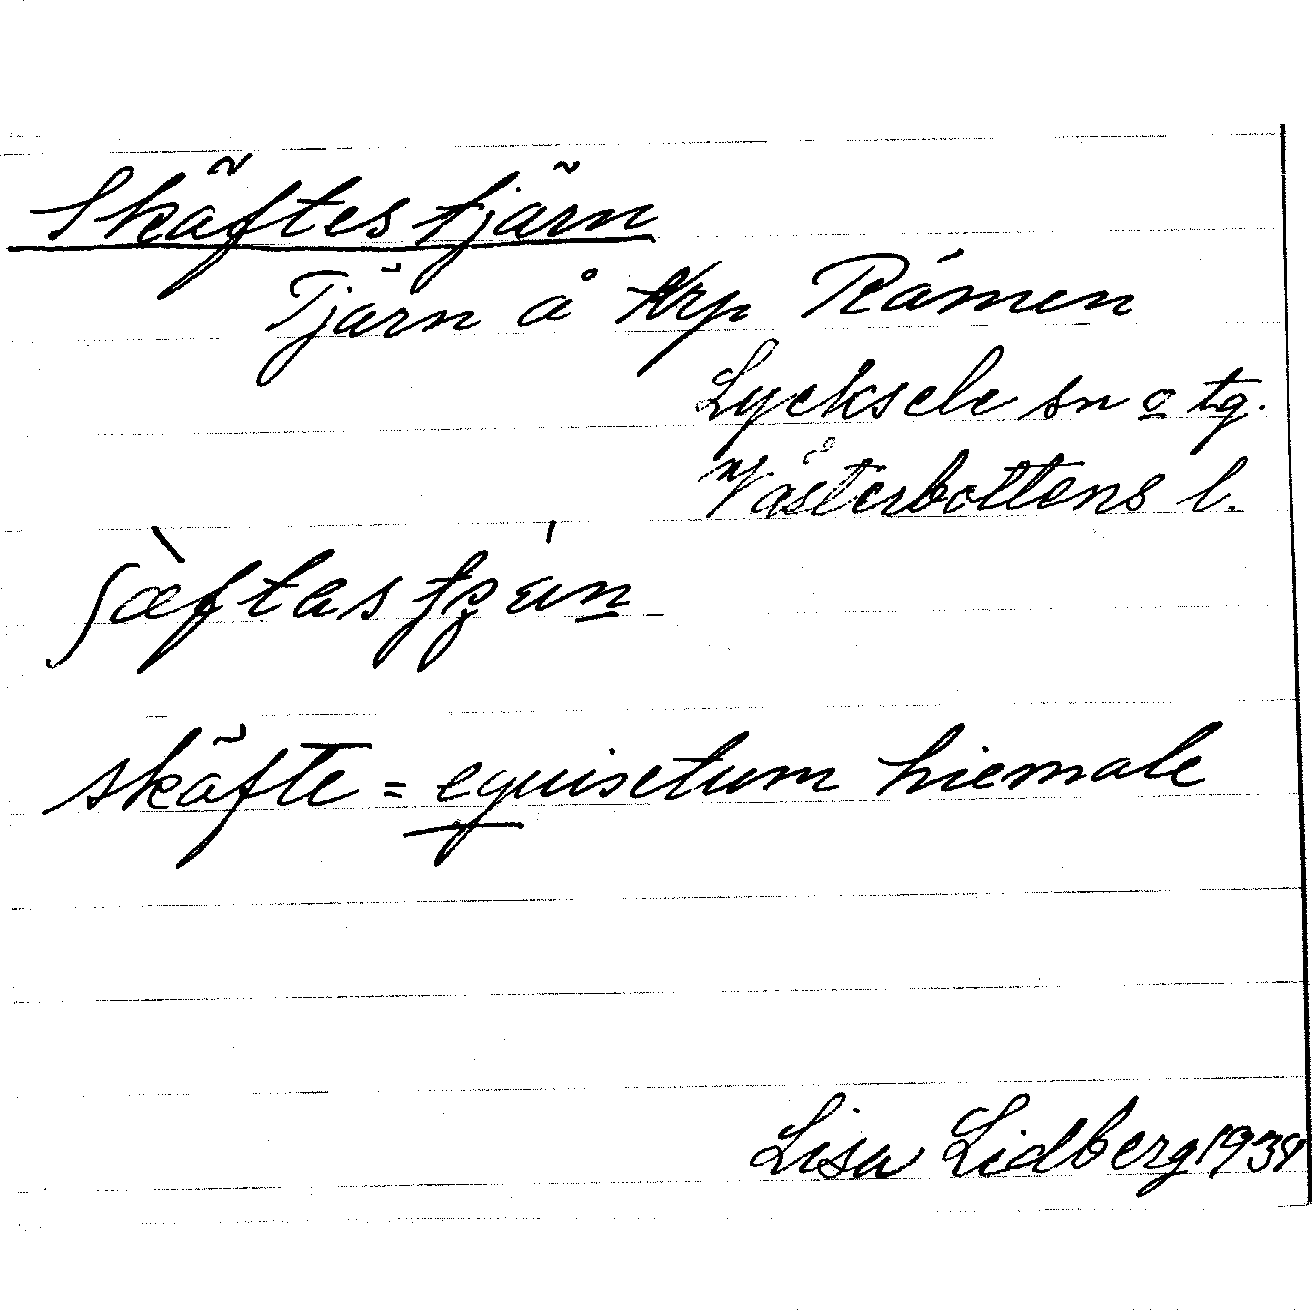 Skäftestjärn
Tjärn å krp Råmen
Lycksele sn o tg.
Västerbottens l.
skäfte = equisetum hiemale
Lisa Lidberg